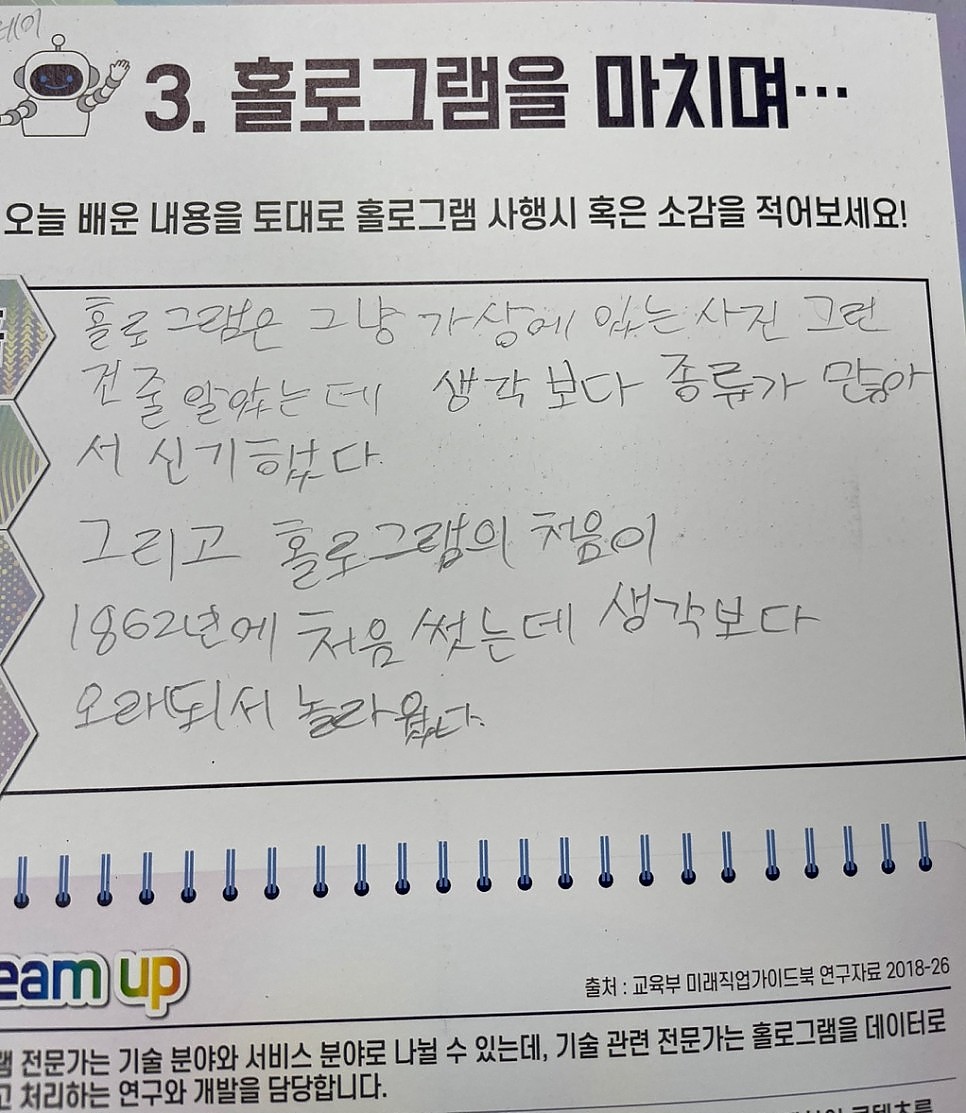 3. 홀로그램을 마치며…
오늘 배운 내용을 토대로 홀로그램 사행시 혹은 소감을 적어보세요!
홀로그램은 그냥 가상에 있는 사진 그런
건줄 알았는데 생각보다 종류가 많아
서 신기했다.
그리고 홀로그램의 처음이
1862년에 처음 썻는데 생각보다
오래되서 놀라웠다.
eam up
출처 : 교육부 미래직업가이드북 연구자료 2018-26
램 전문가는 기술 분야와 서비스 분야로 나뉠 수 있는데, 기술 관련 전문가는 홀로그램을 데이터로
고 처리하는 연구와 개발을 담당합니다.